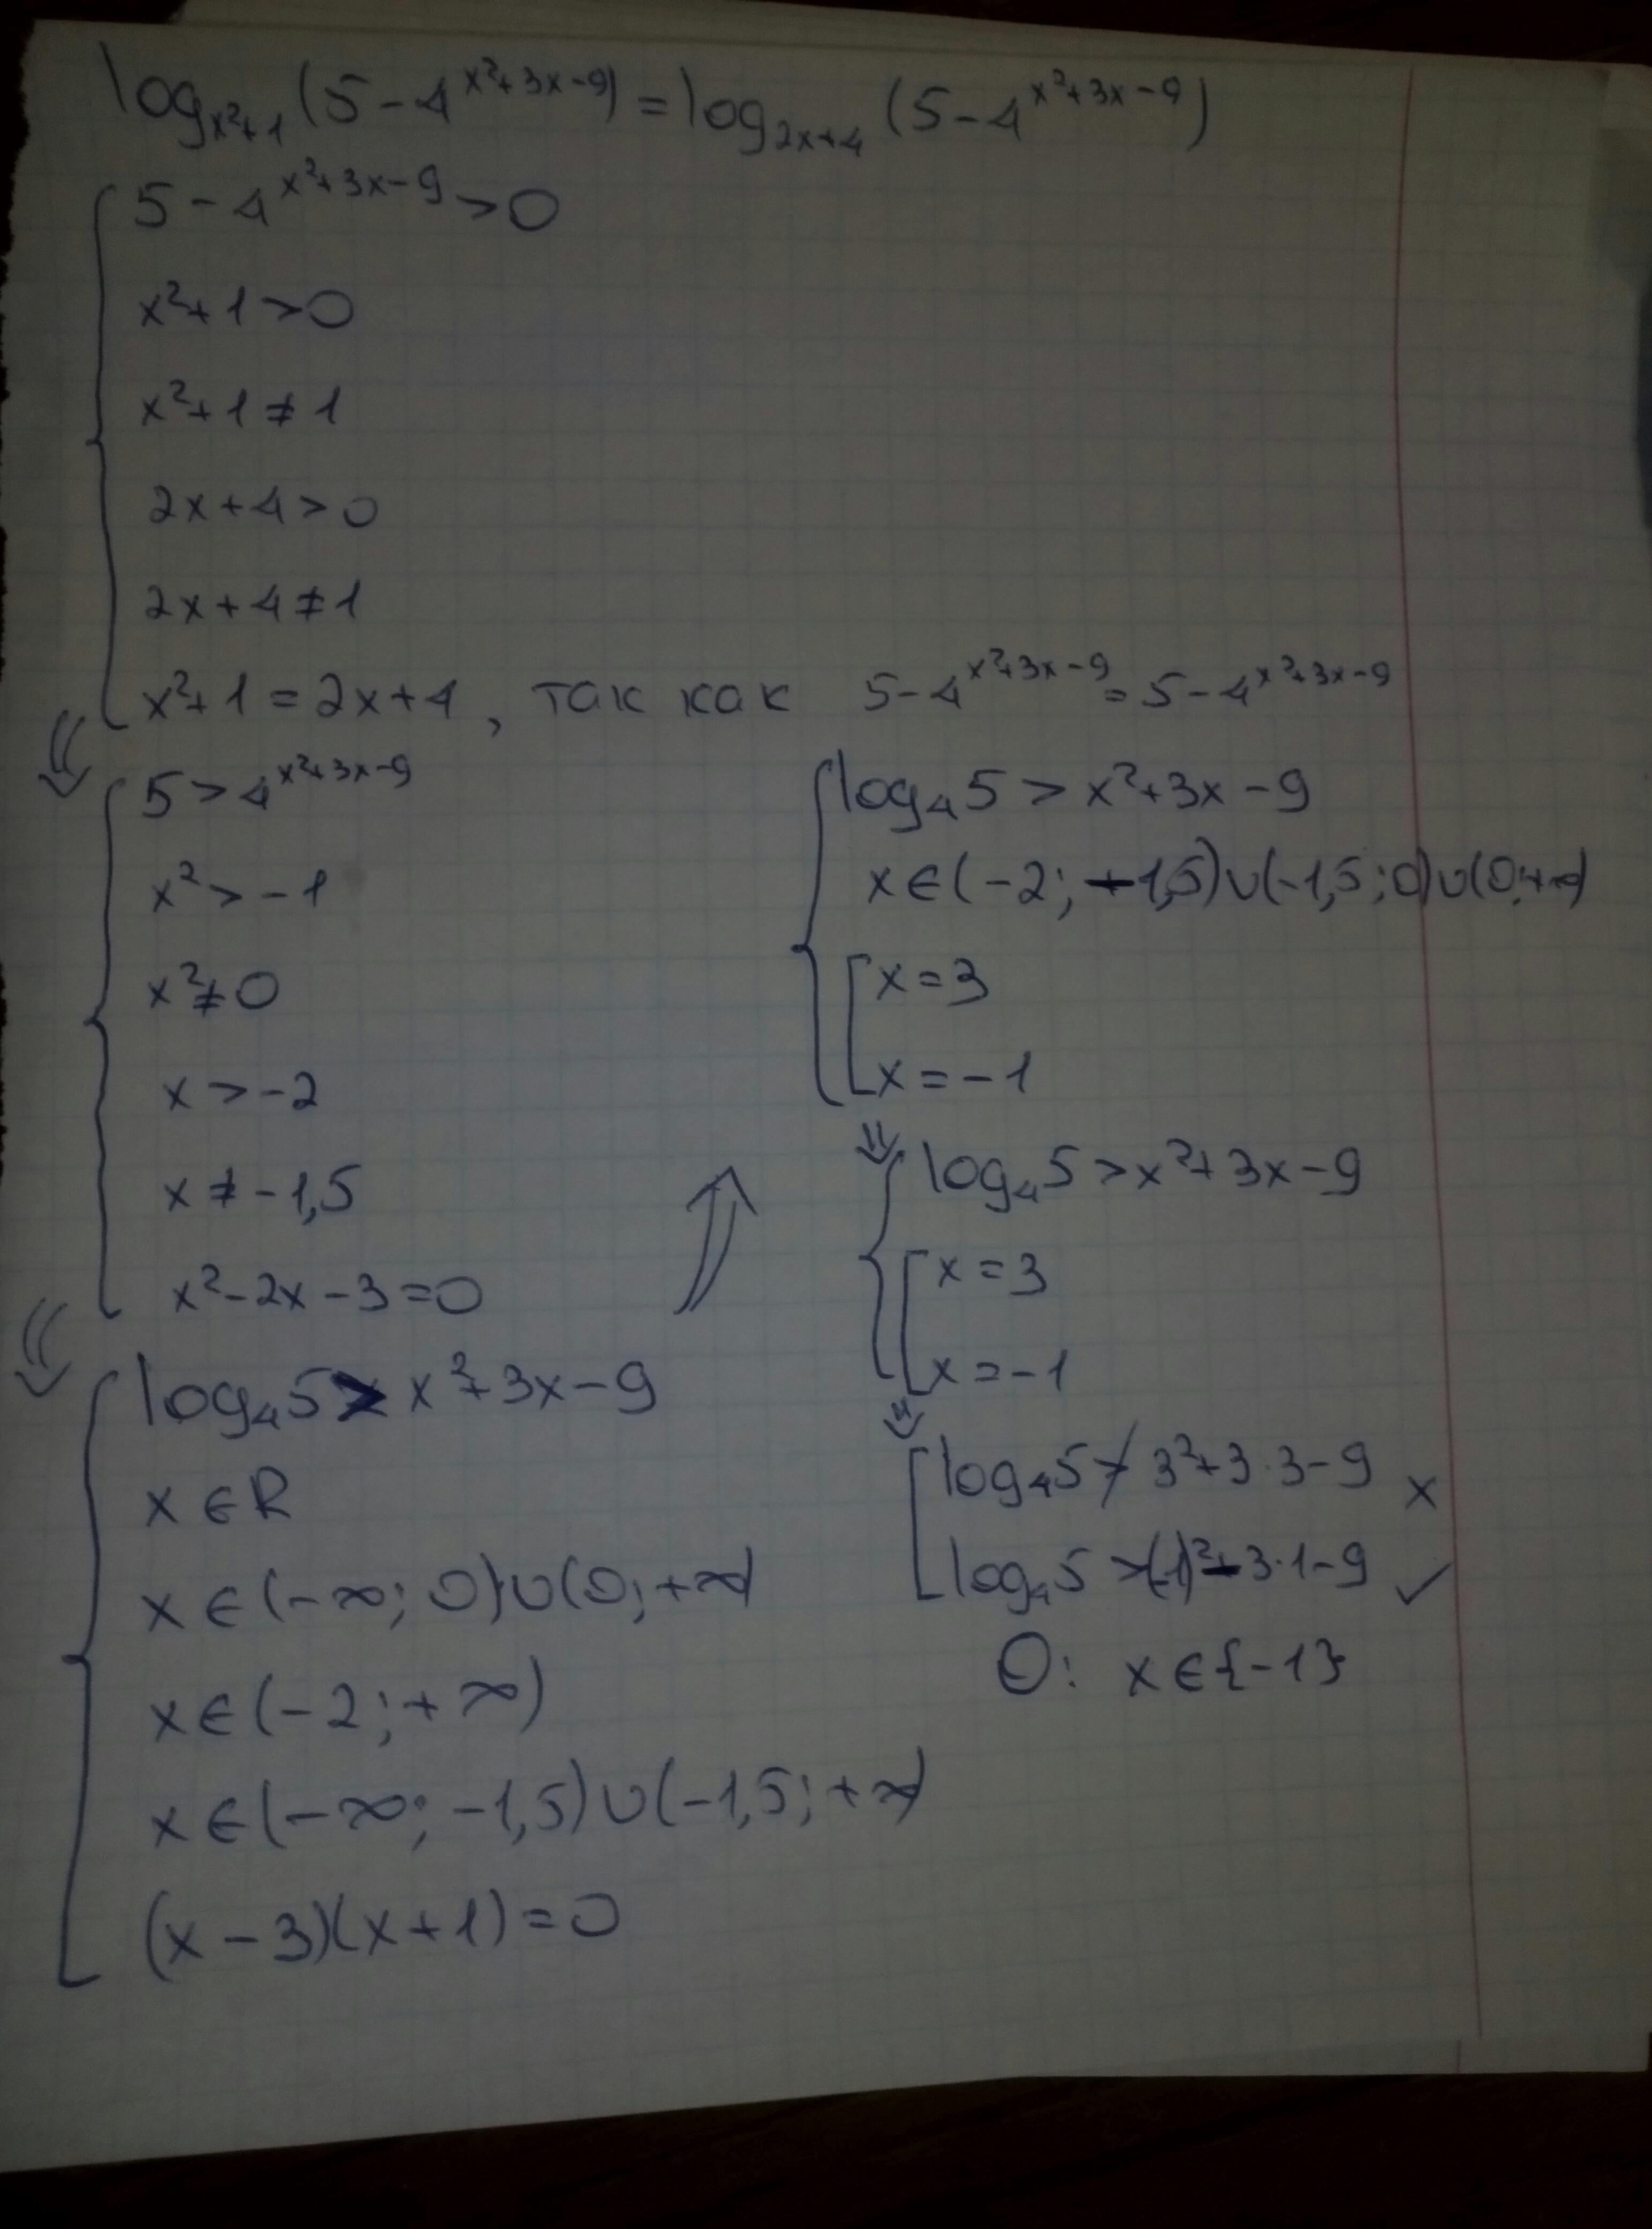 log_{x²+1} (5 - 4^{x²+3x-9}) = log_{2x+4} (5 - 4^{x²+3x-9})
5 - 4^{x²+3x-9} > 0
x² + 1 > 0
x² + 1 ≠ 1
2x + 4 > 0
2x + 4 ≠ 1
x² + 1 = 2x + 4, так как 5 - 4^{x²+3x-9} = 5 - 4^{x²+3x-9}
⇓
5 > 4^{x²+3x-9}
x² > -1
x² ≠ 0
x > -2
x ≠ -1,5
x² - 2x - 3 = 0
⇓
log₄ 5 > x² + 3x - 9
x ∈ R
x ∈ (-∞; 0) ∪ (0; +∞)
x ∈ (-2; +∞)
x ∈ (-∞; -1,5) ∪ (-1,5; +∞)
(x - 3)(x + 1) = 0
⇑
log₄ 5 > x² + 3x - 9
x ∈ (-2; -1,5) ∪ (-1,5; 0) ∪ (0; +∞)
x = 3
x = -1
⇓
log₄ 5 > x² + 3x - 9
x = 3
x = -1
⇓
log₄ 5 ≯ 3² + 3·3 - 9 ×
log₄ 5 > (-1)² - 3·1 - 9 ✓
О: x ∈ {-1}